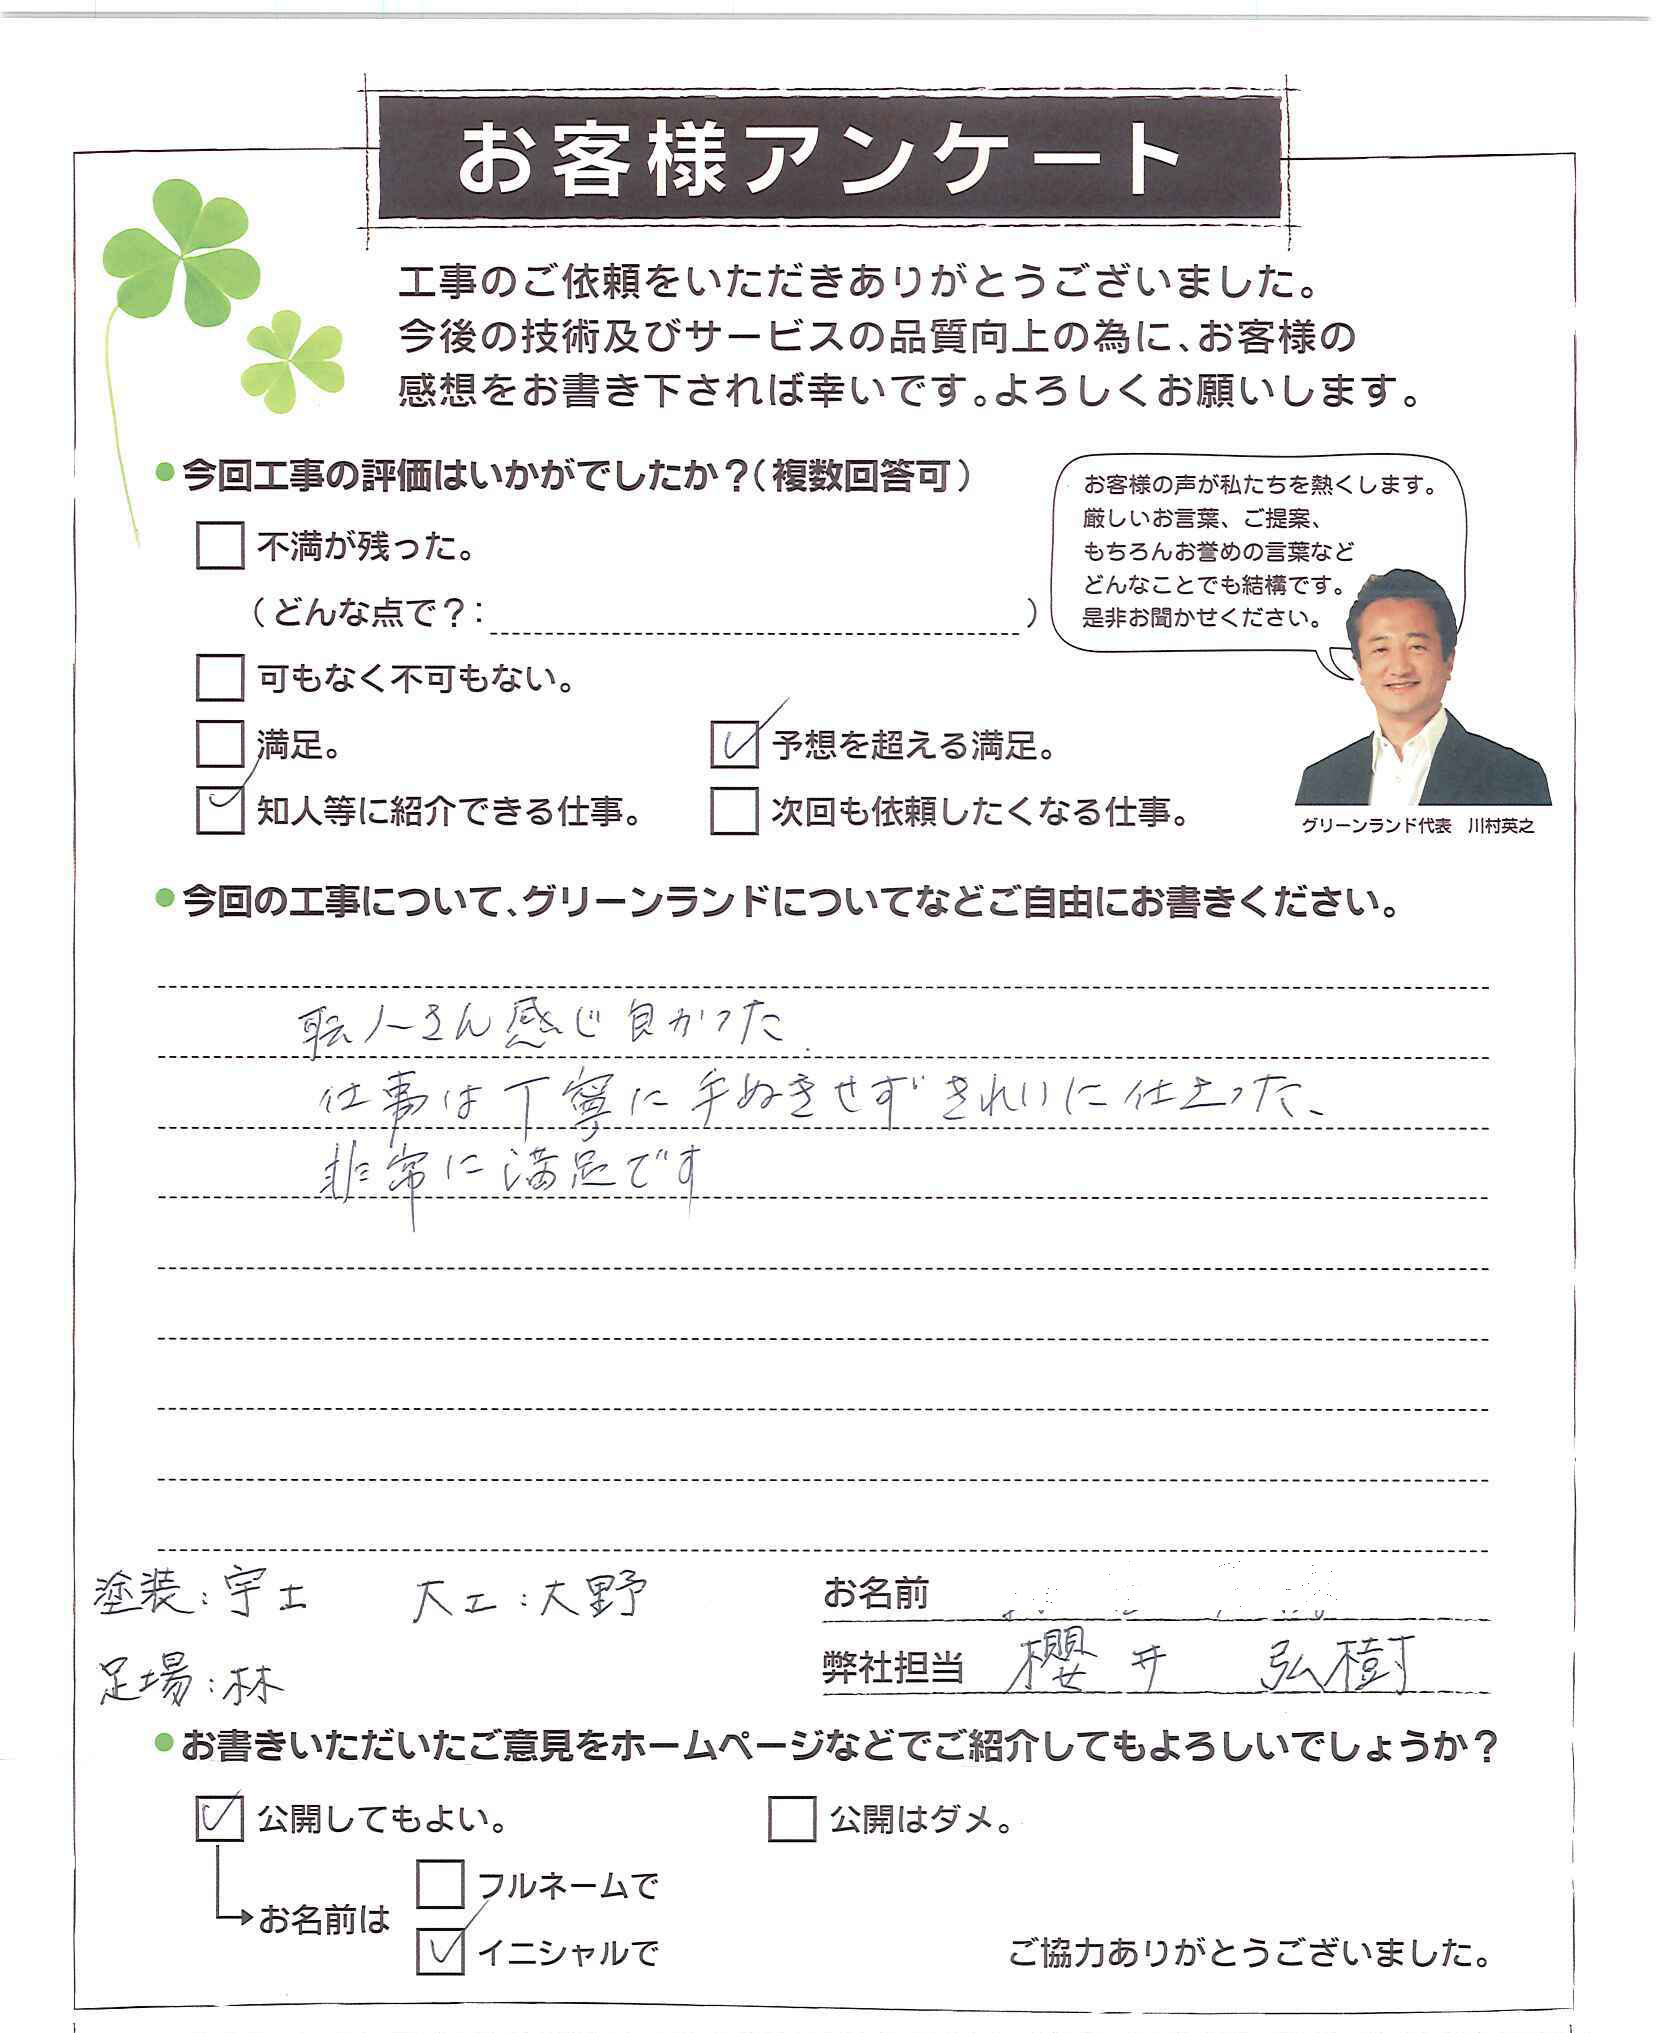 お客様アンケート
工事のご依頼をいただきありがとうございました。
今後の技術及びサービスの品質向上の為に、お客様の
感想をお書き下されば幸いです。よろしくお願いします。
●今回工事の評価はいかがでしたか？（複数回答可）
お客様の声が私たちを熱くします。
厳しいお言葉、ご提案、
もちろんお誉めの言葉など
どんなことでも結構です。
是非お聞かせください。
不満が残った。
（どんな点で？：　）
可もなく不可もない。
満足。
予想を超える満足。
知人等に紹介できる仕事。
次回も依頼したくなる仕事。
グリーンランド代表　川村英之
●今回の工事について、グリーンランドについてなどご自由にお書きください。
職人さん感じ良かった
仕事は丁寧に手ぬきせずきれいに仕上った、
非常に満足です
塗装：宇土　大工：大野
お名前
足場：林
弊社担当　櫻井　弘樹
●お書きいただいたご意見をホームページなどでご紹介してもよろしいでしょうか？
公開してもよい。
公開はダメ。
お名前は
フルネームで
イニシャルで
ご協力ありがとうございました。